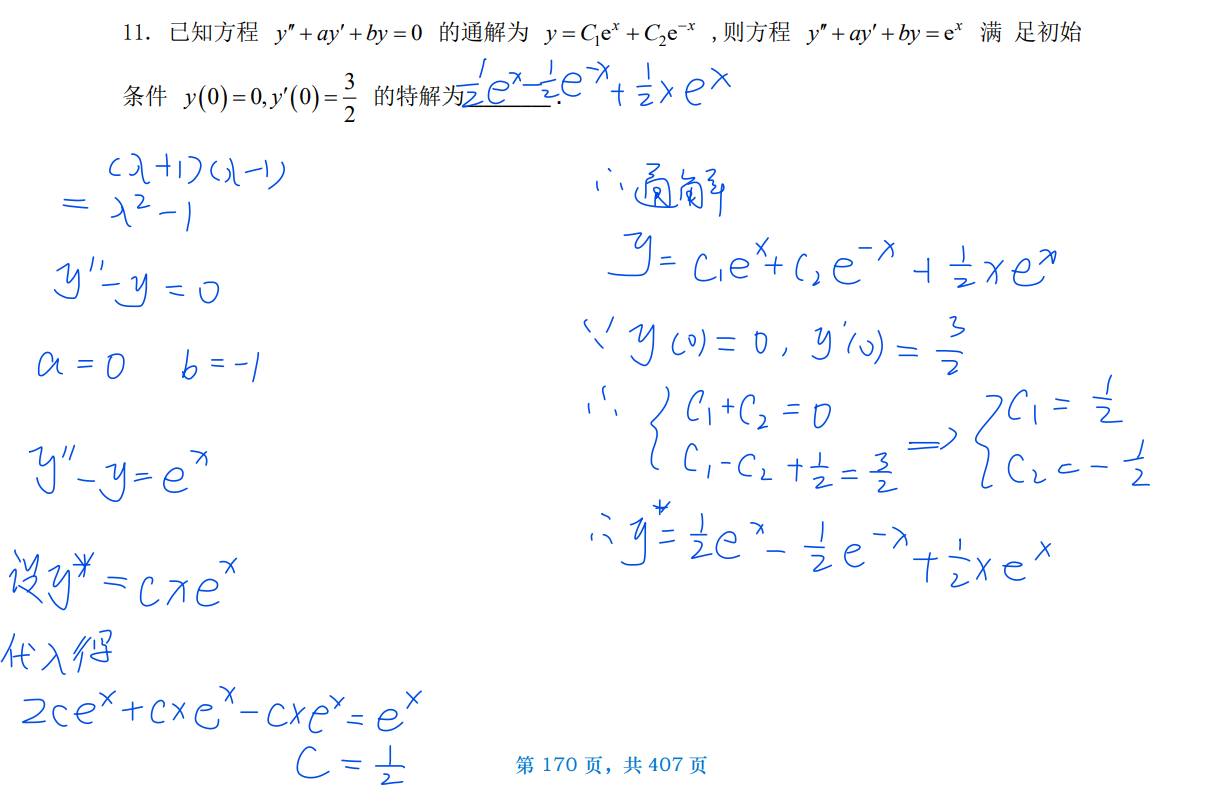 11. 已知方程 y″ + ay′ + by = 0 的通解为 y = C₁eˣ + C₂e⁻ˣ ,则方程 y″ + ay′ + by = eˣ 满 足初始
条件 y(0) = 0, y′(0) = 3/2 的特解为 1/2 eˣ - 1/2 e⁻ˣ + 1/2 x eˣ .
(λ+1)(λ-1)
= λ² - 1
y″ - y = 0
a = 0 b = -1
y″ - y = eˣ
设 y* = cxeˣ
代入得
2ceˣ + cxeˣ - cxeˣ = eˣ
C = 1/2
∴ 通解
y = C₁eˣ + C₂e⁻ˣ + 1/2 x eˣ
∵ y(0) = 0, y′(0) = 3/2
∴ { C₁ + C₂ = 0 ⇒ { C₁ = 1/2
C₁ - C₂ + 1/2 = 3/2 C₂ = - 1/2
∴ y* = 1/2 eˣ - 1/2 e⁻ˣ + 1/2 x eˣ
第 170 页，共 407 页